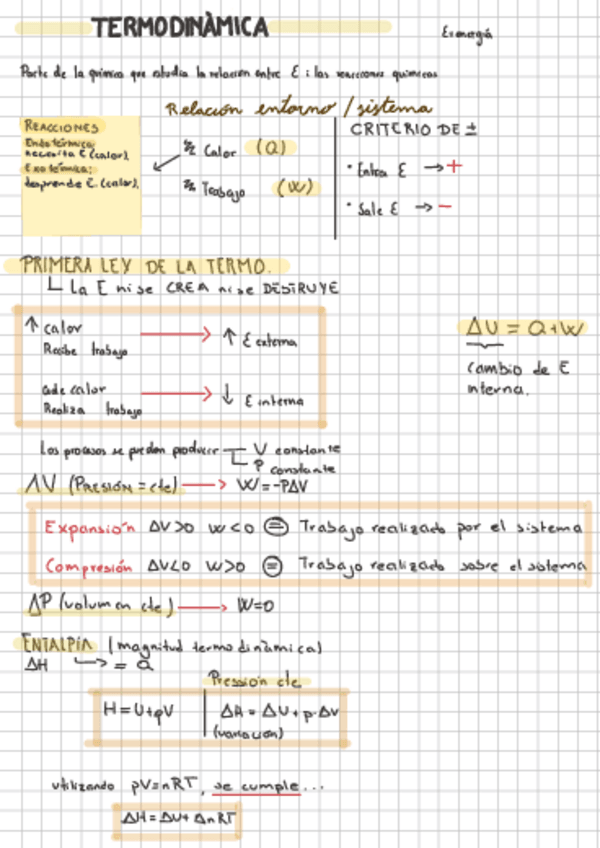 TERMODINÀMICA
E=energía
Parte de la química que estudia la relación entre E i las reacciones químicas
Relación entorno / sistema
REACCIONES
Endotérmica:
necesita E (calor).
Exotérmica:
desprende E. (calor).
Calor (Q)
Trabajo (W)
CRITERIO DE ±
· Entra E → +
· Sale E → -
PRIMERA LEY DE LA TERMO.
La E ni se CREA ni se DESTRUYE
↑ calor → ↑ E externa
Recibe trabajo
cede calor → ↓ E interna
Realiza trabajo
ΔU = Q+W
cambio de E
interna.
Los procesos se pueden producir V constante
P constante
ΔV (PRESIÓN = cte) → W=-PΔV
Expansión ΔV>0 W<0 = Trabajo realizado por el sistema
Compresión ΔV<0 W>0 = Trabajo realizado sobre el sistema
ΔP (volumen cte) → W=0
ENTALPÍA (magnitud termodinàmica)
ΔH → = Q
Pressión cte
H=U+pV | ΔH = ΔU + p·ΔV
(variación)
utilizando pV=nRT, se cumple...
ΔH = ΔU + ΔnRT